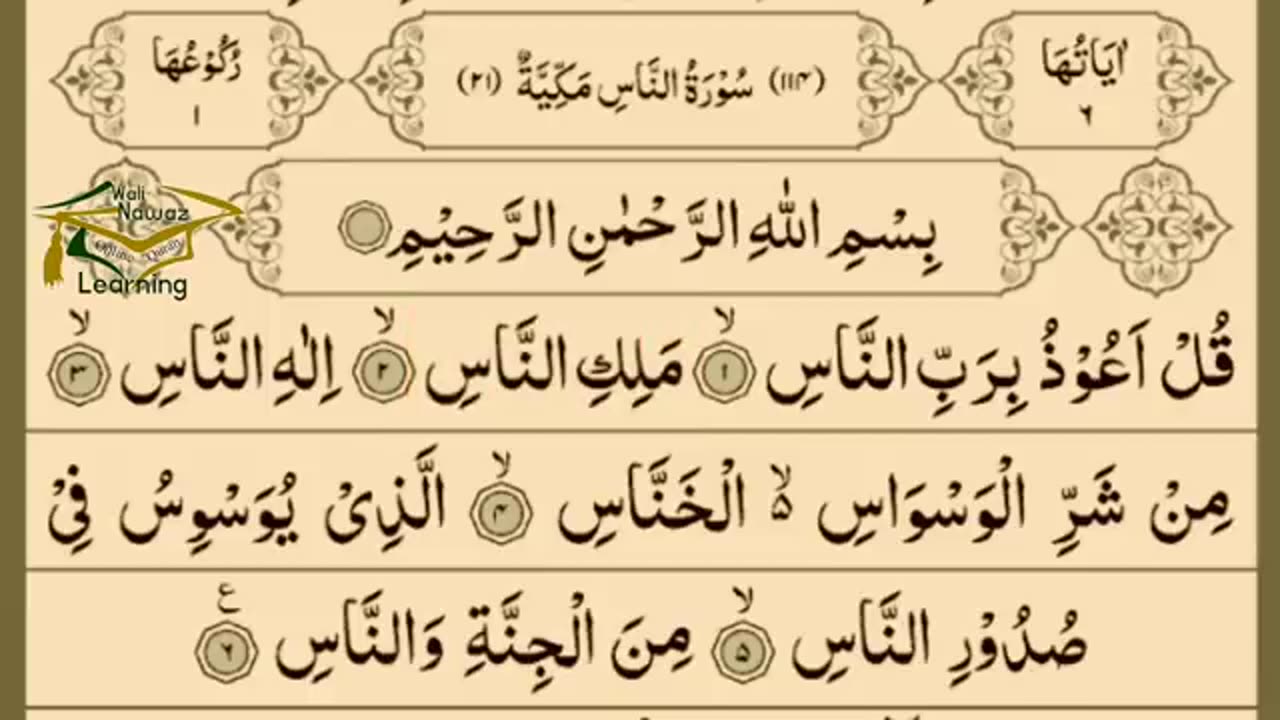 اٰيَاتُهَا ٦
(١١٤) سُوْرَةُ النَّاسِ مَكِّيَّةٌ (٢١)
رُكُوْعُهَا ١
Wali
Nawaz
Online Quran
Learning
بِسْمِ اللّٰهِ الرَّحْمٰنِ الرَّحِيْمِ
قُلْ اَعُوْذُ بِرَبِّ النَّاسِ ۙ‏﴿۱﴾ مَلِكِ النَّاسِ ۙ‏﴿۲﴾ اِلٰهِ النَّاسِ ۙ‏﴿۳﴾
مِنْ شَرِّ الْوَسْوَاسِ ۙ۵ الْخَنَّاسِ ۙ‏﴿۴﴾ الَّذِىْ يُوَسْوِسُ فِىْ
صُدُوْرِ النَّاسِ ۙ‏﴿۵﴾ مِنَ الْجِنَّةِ وَالنَّاسِ ع﴿۶﴾